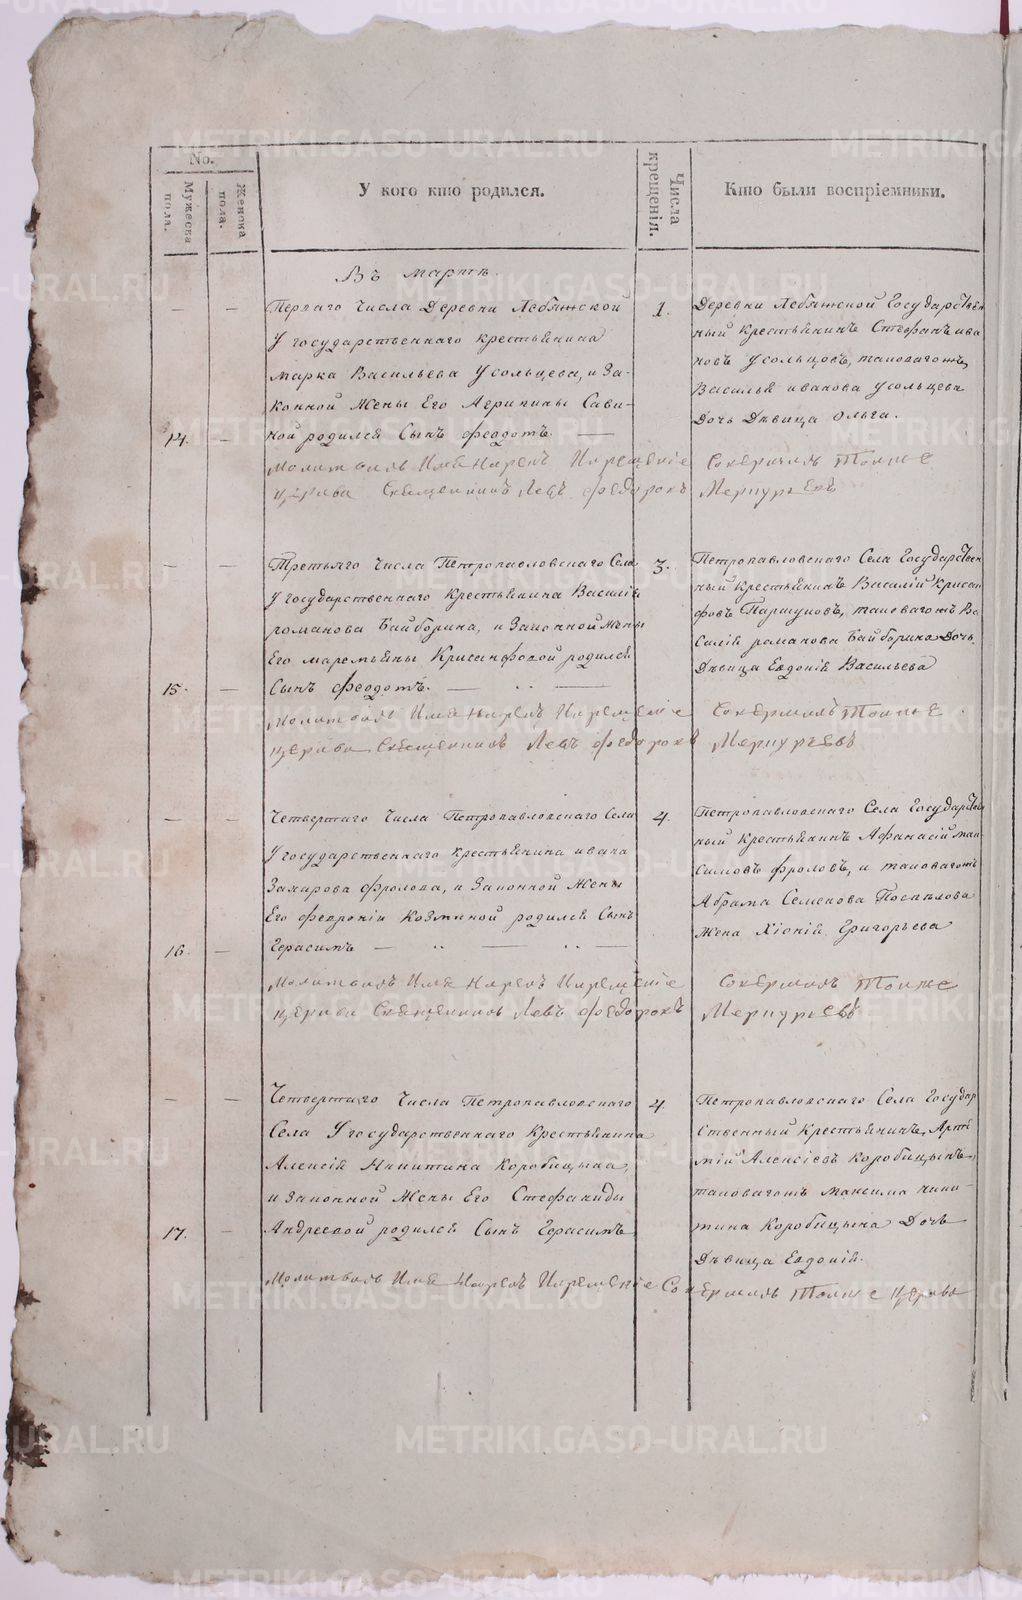 METRIKI.GASO-URAL.RU
No.
Мужеска пола.
Женска пола.
У кого кто родился.
Числа крещенія.
Кто были воспріемники.
Въ мартѣ.
Перваго Числа Деревни Лебяжской
У государственнаго крестьянина
Марка Васильева Усольцева, и За-
конной Жены Его Агрипины Сави-
14.
ной родился Сынъ Феодотъ.
1.
Деревни Лебяжской Государствен
ный крестьянинъ Стефанъ ива
новъ Усольцовъ, таковагожъ
Василья иванова Усольцева
Дочь Дѣвица Ольга.
Молитвилъ Имя Нарекъ Икрещеніе Совершилъ Тояже
Церкви Священникъ Левъ Федоровъ Меркурьевъ
Третьяго Числа Петропавловскаго Села
У государственнаго Крестьянина Василія
романова Байборина, и Законной Жены
Его маремьяны Крисанфовой родился
15.
Сынъ Феодотъ.
3.
Петропавловскаго Села Государствен
ный Крестьянинъ Василій Крисан
фовъ Паршуковъ, таковагожъ Ва
силія романова Байборина Дочь
Дѣвица Евдокія Васильева
Молитвилъ Имя Нарекъ Икрещеніе Совершилъ Тояже
церкви Священникъ Левъ Федоровъ Меркурьевъ
Четвертаго Числа Петропавловскаго Села
У государственнаго Крестьянина ивана
Захарова Фролова, и Законной Жены
Его Февроніи Козминой родился Сынъ
16.
Герасимъ
4.
Петропавловскаго Села Государствен
ный Крестьянинъ Афанасій мак
симовъ Фроловъ, и таковагожъ
Абрама Семенова Поспѣлова
Жена Хіонія Григорьева
Молитвилъ Имя Нарекъ Икрещеніе Совершилъ Тояже
церкви Священникъ Левъ Федоровъ Меркурьевъ
Четвертаго Числа Петропавловскаго
Села У государственнаго Крестьянина
Алексія Никитина Коробицына,
и Законной Жены Его Стефаниды
17.
Андреевой родился Сынъ Герасимъ
4.
Петропавловскаго Села Государ
ственный Крестьянинъ, Арте
мій Алексіевъ Коробицынъ,
таковагожъ Максима Ники-
тина Коробицына Дочь
Дѣвица Евдокія.
Молитвилъ Имя Нарекъ Икрещеніе Совершилъ Тояже церкви